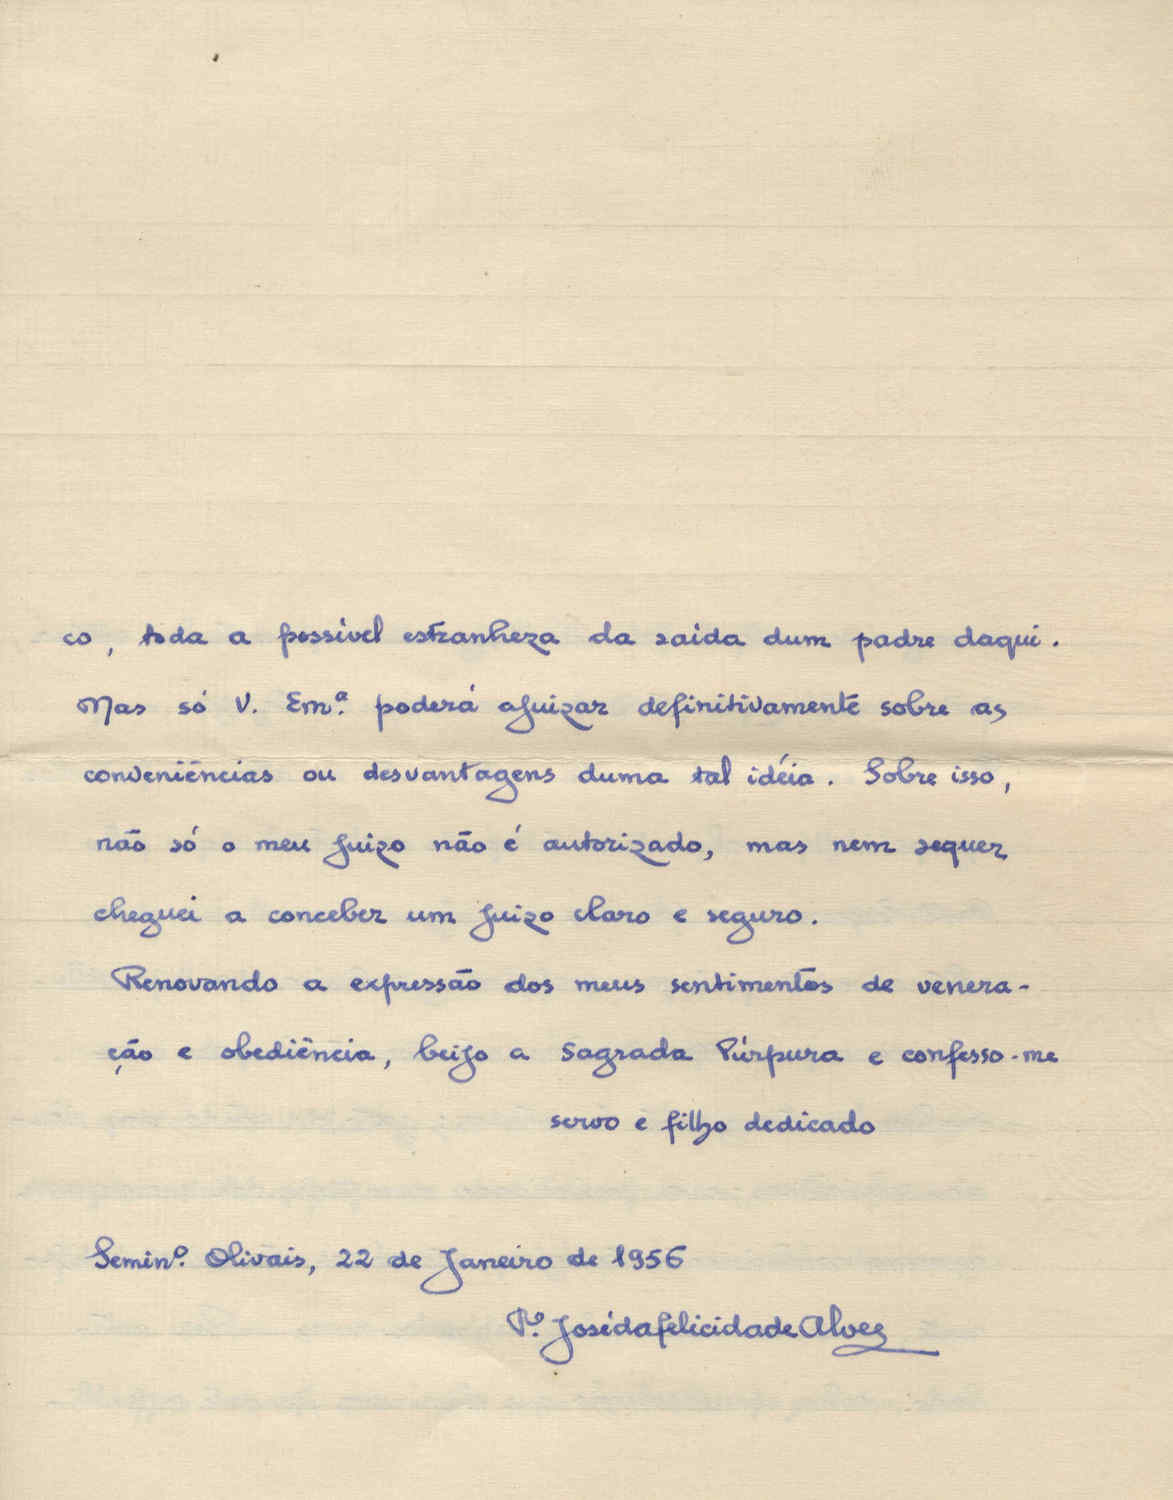 co, toda a possível estranheza da saida dum padre daqui.
Mas só V. Em.ª poderá ajuizar definitivamente sobre as
conveniências ou desvantagens duma tal idéia. Sobre isso,
não só o meu juizo não é autorizado, mas nem sequer
cheguei a conceber um juizo claro e seguro.
Renovando a expressão dos meus sentimentos de venera-
ção e obediência, beijo a Sagrada Púrpura e confesso-me
servo e filho dedicado
Semin.º Olivais, 22 de Janeiro de 1956
P.º José da Felicidade Alves